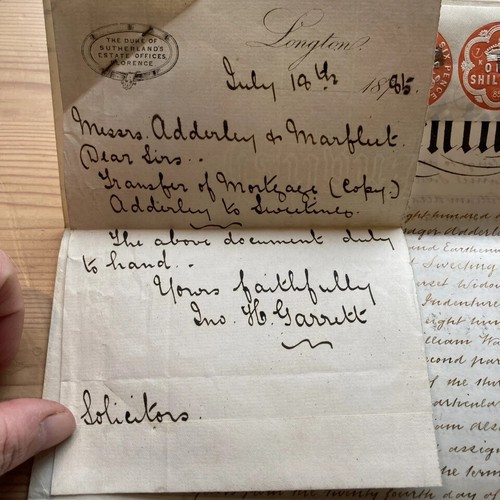 THE DUKE OF
SUTHERLAND'S
ESTATE OFFICES,
FLORENCE
Longton,
July 18th 1885.
Messrs. Adderley & Marfleet.
Dear Sirs..
Transfer of Mortgage (Copy.)
Adderley to Sweeting.
The above document duly
to hand..
Yours faithfully
Jno. H. Garrett
Solicitors.
SIXPENCE
SHILL
ght hundred
Adderl
and Earthen
Sweeting
set Widow
Indenture
ight hun
illiam Wa
econd par
of the
articular
am des
assig
the term
twenty fourth day of